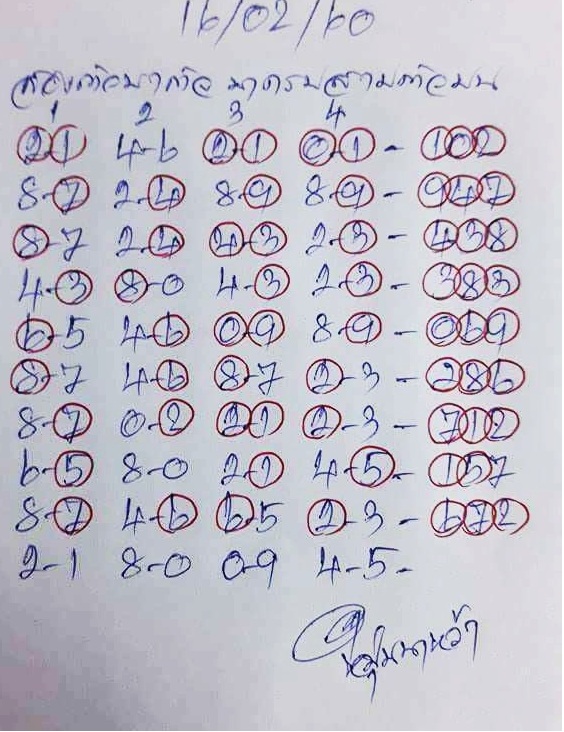 16/02/60
สองตัวมาตัว มาครบสามตัวบน
1 2 3 4
21 4-6 2-1 0-1 - 102
8-7 2-4 8-9 8-9 - 947
8-7 2-4 4-3 2-3 - 438
4-3 8-0 4-3 2-3 - 383
6-5 4-6 0-9 8-9 - 069
8-7 4-6 8-7 2-3 - 286
8-7 0-2 21 2-3 - 712
6-5 8-0 2-1 4-5 - 157
8-7 4-6 6-5 2-3 - 672
2-1 8-0 0-9 4-5 -